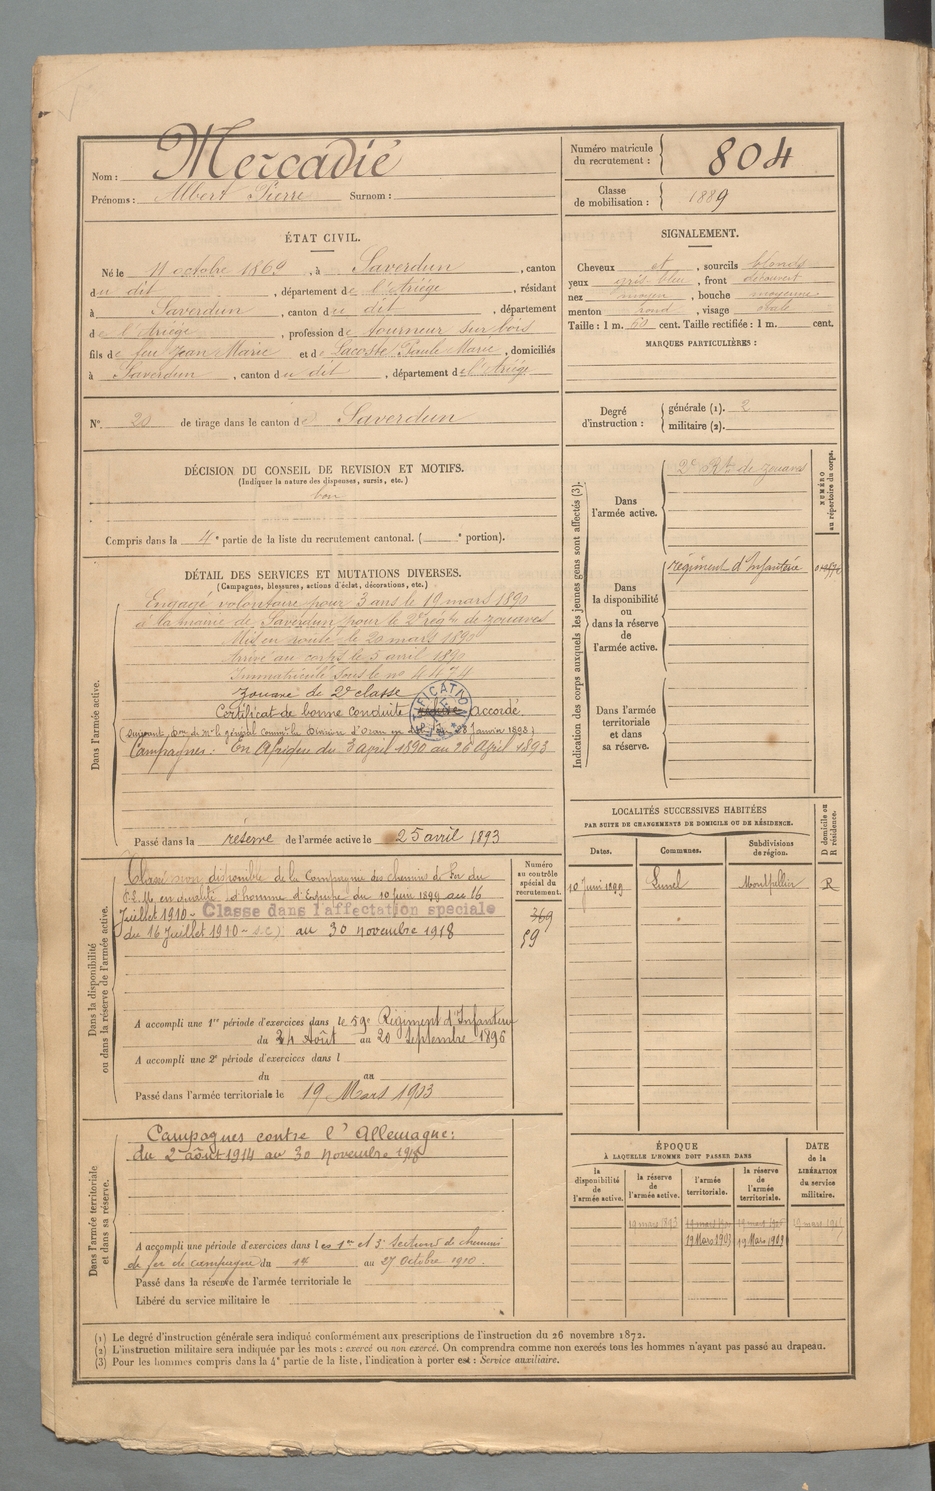 Nom : Mercadié
Prénoms : Albert Pierre Surnom :
Numéro matricule du recrutement : 804
Classe de mobilisation : 1889
ÉTAT CIVIL.
Né le 11 octobre 1869, à Saverdun, canton
du dit, département de l'Ariège, résidant
à Saverdun, canton du dit, département
de l'Ariège, profession de tourneur sur bois
fils de feu Jean Marie et de Lacoste Paule Marie, domiciliés
à Saverdun, canton du dit, département de l'Ariège
SIGNALEMENT.
Cheveux et, sourcils blonds
yeux gris-bleu, front découvert
nez moyen, bouche moyenne
menton rond, visage ovale
Taille : 1 m. 60 cent. Taille rectifiée : 1 m. cent.
MARQUES PARTICULIÈRES :
N° 20 de tirage dans le canton de Saverdun
Degré d'instruction : générale (1). 2
militaire (2).
DÉCISION DU CONSEIL DE REVISION ET MOTIFS.
(Indiquer la nature des dispenses, sursis, etc.)
bon
Compris dans la 4e partie de la liste du recrutement cantonal. ( e portion).
DÉTAIL DES SERVICES ET MUTATIONS DIVERSES.
(Campagnes, blessures, actions d'éclat, décorations, etc.)
Dans l'armée active.
Engagé volontaire pour 3 ans le 19 mars 1890
à la mairie de Saverdun pour le 2e régt de zouaves
Mis en route le 20 mars 1890
Arrivé au corps le 5 avril 1890
Immatriculé sous le no 4474
Zouave de 2e classe
Certificat de bonne conduite accordé
Mr le général Commt la Division d'Oran en 28 Janvier 1893)
Campagnes : En Afrique du 3 avril 1890 au 26 April 1893
Passé dans la réserve de l'armée active le 25 avril 1893
Indication des corps auxquels les jeunes gens sont affectés (3).
Dans l'armée active. 2e Rt de zouaves
NUMÉRO au répertoire du corps.
Dans la disponibilité ou dans la réserve de l'armée active. régiment d'Infanterie
Dans l'armée territoriale et dans sa réserve.
Dans la disponibilité ou dans la réserve de l'armée active.
Classé non disponible de la Compagnie des chemins de Fer du
P.L.M. en qualité d'homme d'Equipe du 10 juin 1899 au 16
Juillet 1910 - Classe dans l'affectation spéciale
du 16 Juillet 1910 - s.c.) au 30 novembre 1918
Numéro au contrôle spécial du recrutement.
369
59
A accompli une 1re période d'exercices dans le 59e Régiment d'Infanterie
du 24 Août au 20 Septembre 1896
A accompli une 2e période d'exercices dans l
du au
Passé dans l'armée territoriale le 19 Mars 1903
LOCALITÉS SUCCESSIVES HABITÉES
PAR SUITE DE CHANGEMENTS DE DOMICILE OU DE RÉSIDENCE.
Dates. Communes. Subdivisions de région. D domicile ou R résidence.
10 Juin 1899 Lunel Montpellier R
Dans l'armée territoriale et dans sa réserve.
Campagnes contre l'Allemagne :
du 2 août 1914 au 30 novembre 1918
A accompli une période d'exercices dans les 1re et 3e Sections de chemins
de fer de campagne du 14 au 27 Octobre 1910.
Passé dans la réserve de l'armée territoriale le
Libéré du service militaire le
ÉPOQUE
À LAQUELLE L'HOMME DOIT PASSER DANS
la disponibilité de l'armée active. la réserve de l'armée active. l'armée territoriale. la réserve de l'armée territoriale.
DATE de la LIBÉRATION du service militaire.
19 mars 1893
19 Mars 1903 19 Mars 1909
(1) Le degré d'instruction générale sera indiqué conformément aux prescriptions de l'instruction du 26 novembre 1872.
(2) L'instruction militaire sera indiquée par les mots : exercé ou non exercé. On comprendra comme non exercés tous les hommes n'ayant pas passé au drapeau.
(3) Pour les hommes compris dans la 4e partie de la liste, l'indication à porter est : Service auxiliaire.